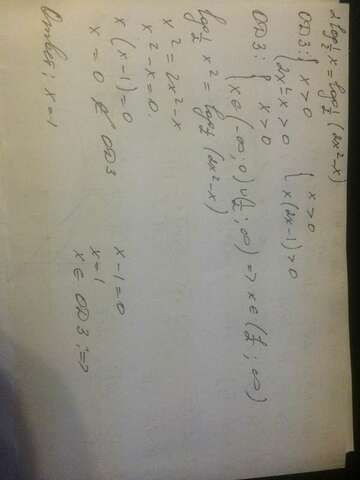 2log½ x = log½ (2x²-x)
ОДЗ: { x > 0   { x > 0
2x²-x > 0   x(2x-1) > 0
ОДЗ: { x > 0
x ∈ (-∞; 0) ∪ (½; ∞) => x ∈ (½; ∞)
log½ x² = log½ (2x²-x)
x² = 2x²-x
x²-x = 0.
x(x-1) = 0   x-1 = 0
x = 0 ∉ ОДЗ   x = 1
x ∈ ОДЗ; =>
Ответ: x = 1